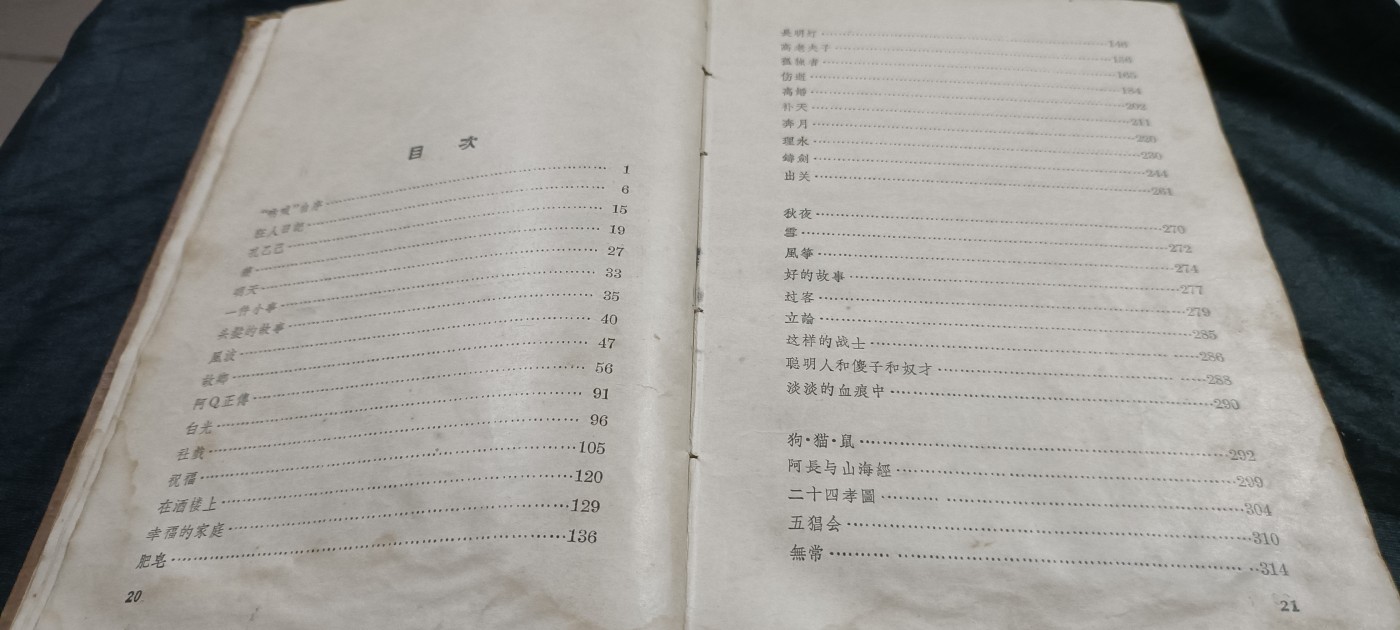 目 次
“吶喊”自序 1
狂人日記 6
孔乙己 15
藥 19
明天 27
一件小事 33
头髮的故事 35
風波 40
故鄉 47
阿Q正傳 56
白光 91
社戲 96
祝福 105
在酒楼上 120
幸福的家庭 129
肥皂 136
20
長明灯 146
高老夫子 156
孤独者 165
伤逝 184
离婚 202
补天 211
奔月 220
理水 230
鑄劍 244
出关 261
秋夜 270
雪 272
風箏 274
好的故事 277
过客 279
立論 285
这样的战士 286
聪明人和傻子和奴才 288
淡淡的血痕中 290
狗·猫·鼠 292
阿長与山海經 299
二十四孝圖 304
五猖会 310
無常 314
21